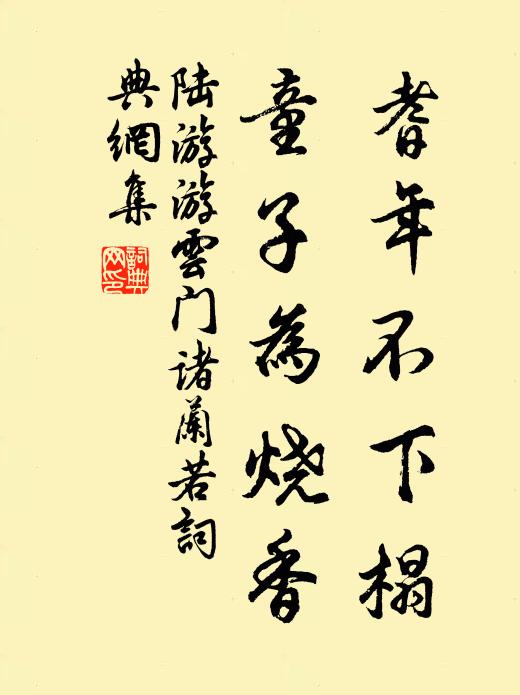 耆年不下榻
童子為烧香
陆游游雲门诸蘭若詞
典網集
詞典
网印